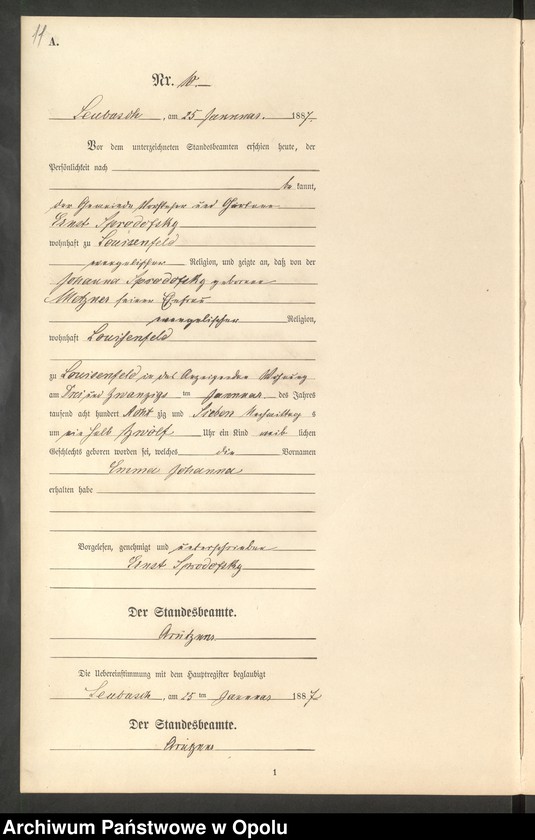 11
A.
Nr. 10.
Leubusch, am 25 Januar 1887.
Vor dem unterzeichneten Standesbeamten erschien heute, der
Persönlichkeit nach
be kannt,
der Gemeinde Vorsteher und
Ernst Sprodofsky
wohnhaft zu Louisenfeld
evangelischer Religion, und zeigte an, daß von der
Johanna Sprodofsky geborene
seiner Ehefrau
evangelischen Religion,
wohnhaft Louisenfeld
zu Louisenfeld in des Anzeigenden Wohnung
am Drei und Zwanzigs ten Januar des Jahres
tausend acht hundert Acht zig und Sieben Nachmittag s
um ein halb Zwölf Uhr ein Kind weib lichen
Geschlechts geboren worden sei, welches die Vornamen
Emma Johanna
erhalten habe
Vorgelesen, genehmigt und unterschrieben
Ernst Sprodofsky
Der Standesbeamte.
Die Uebereinstimmung mit dem Hauptregister beglaubigt
Leubusch, am 25 ten Januar 1887
Der Standesbeamte.
1
Archiwum Państwowe w Opolu